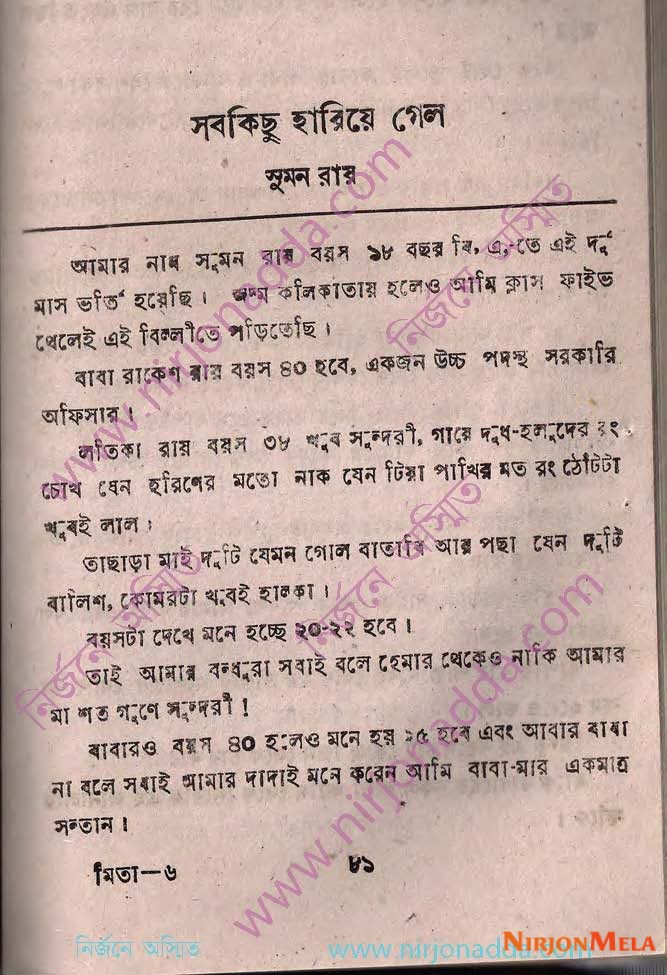 সবকিছু হারিয়ে গেল
সুমন রায়
আমার নাম সুমন রায় বয়স ১৮ বছর বি, এ,-তে এই দু
মাস ভর্তি হয়েছি। জন্ম কলিকাতায় হলেও আমি ক্লাস ফাইভ
থেকেই এই দিল্লীতে পড়িতেছি।
বাবা রাকেশ রায় বয়স ৪০ হবে, একজন উচ্চ পদস্থ সরকারি
অফিসার।
লতিকা রায় বয়স ৩৮ খুব সুন্দরী, গায়ে দুধ-হলুদের রং
চোখ যেন হরিণের মতো নাক যেন টিয়া পাখির মত রং ঠোঁটটা
খুবই লাল।
তাছাড়া মাই দুটি যেমন গোল বাতাবি আর পছা যেন দুটি
বালিশ, কোমরটা খুবই হালকা।
বয়সটা দেখে মনে হচ্ছে ২০-২২ হবে।
তাই আমার বন্ধুরা সবাই বলে হেমার থেকেও নাকি আমার
মা শত গুণে সুন্দরী!
বাবারও বয়স ৪০ হলেও মনে হয় ২৫ হবে এবং আবার বাবা
না বলে সবাই আমার দাদাই মনে করেন আমি বাবা-মার একমাত্র
সন্তান।
মিতা—৬ ৮১
নির্জনে অস্মিত www.nirjonadda.com
NIRJONMELA
www.nirjonadda.com
নির্জনে অস্মিত
নির্জনে অস্মিত
নির্জনে অস্মিত
www.nirjonadda.com